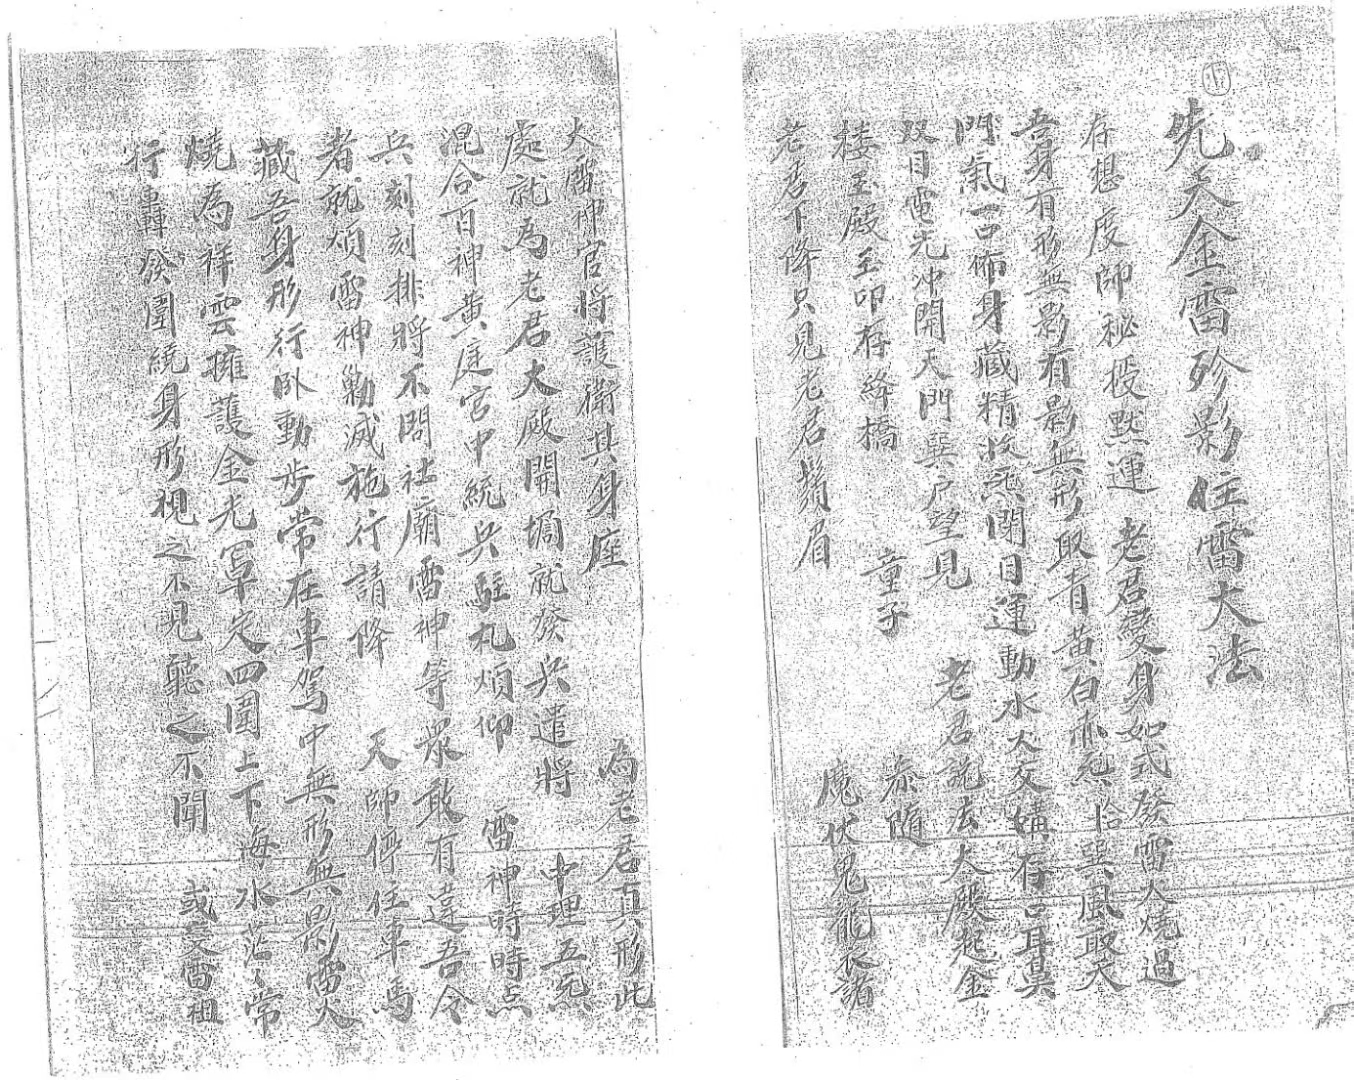 先天金雷珍影任雷大法
存想度師秘授默運 老君變身如式發雷火燒過
吾身有形無影有影無形取青黃白赤炁 恰巽風取天
門氣 口佈身藏精收炁閉目運動水火交媾存口耳鼻
双目電光沖開天門巽户望見 老君說法大殿起金
楼玉殿玉叩存絳橋 童子 泰随
老君下降只見老君鬚眉 魔伏鬼龍衣諸
大雷神官将護衛其身座 為老君真形此
處就為老君大殿開壇就發兵遣將 中理五炁
混合百神黄庭宮中統兵駐札煩仰 雷神時時点
兵刻刻排將不問社廟雷神等眾敢有違吾令
者就煩雷神勦滅施行請降 天師停住車馬
藏吾身形行卧動步常在車駕中無形無影雷火
燒為祥雲擁護金光罩定四圍上下海水茫々常
行轟發圍繞身形視之不見聽之不聞 或変雷祖